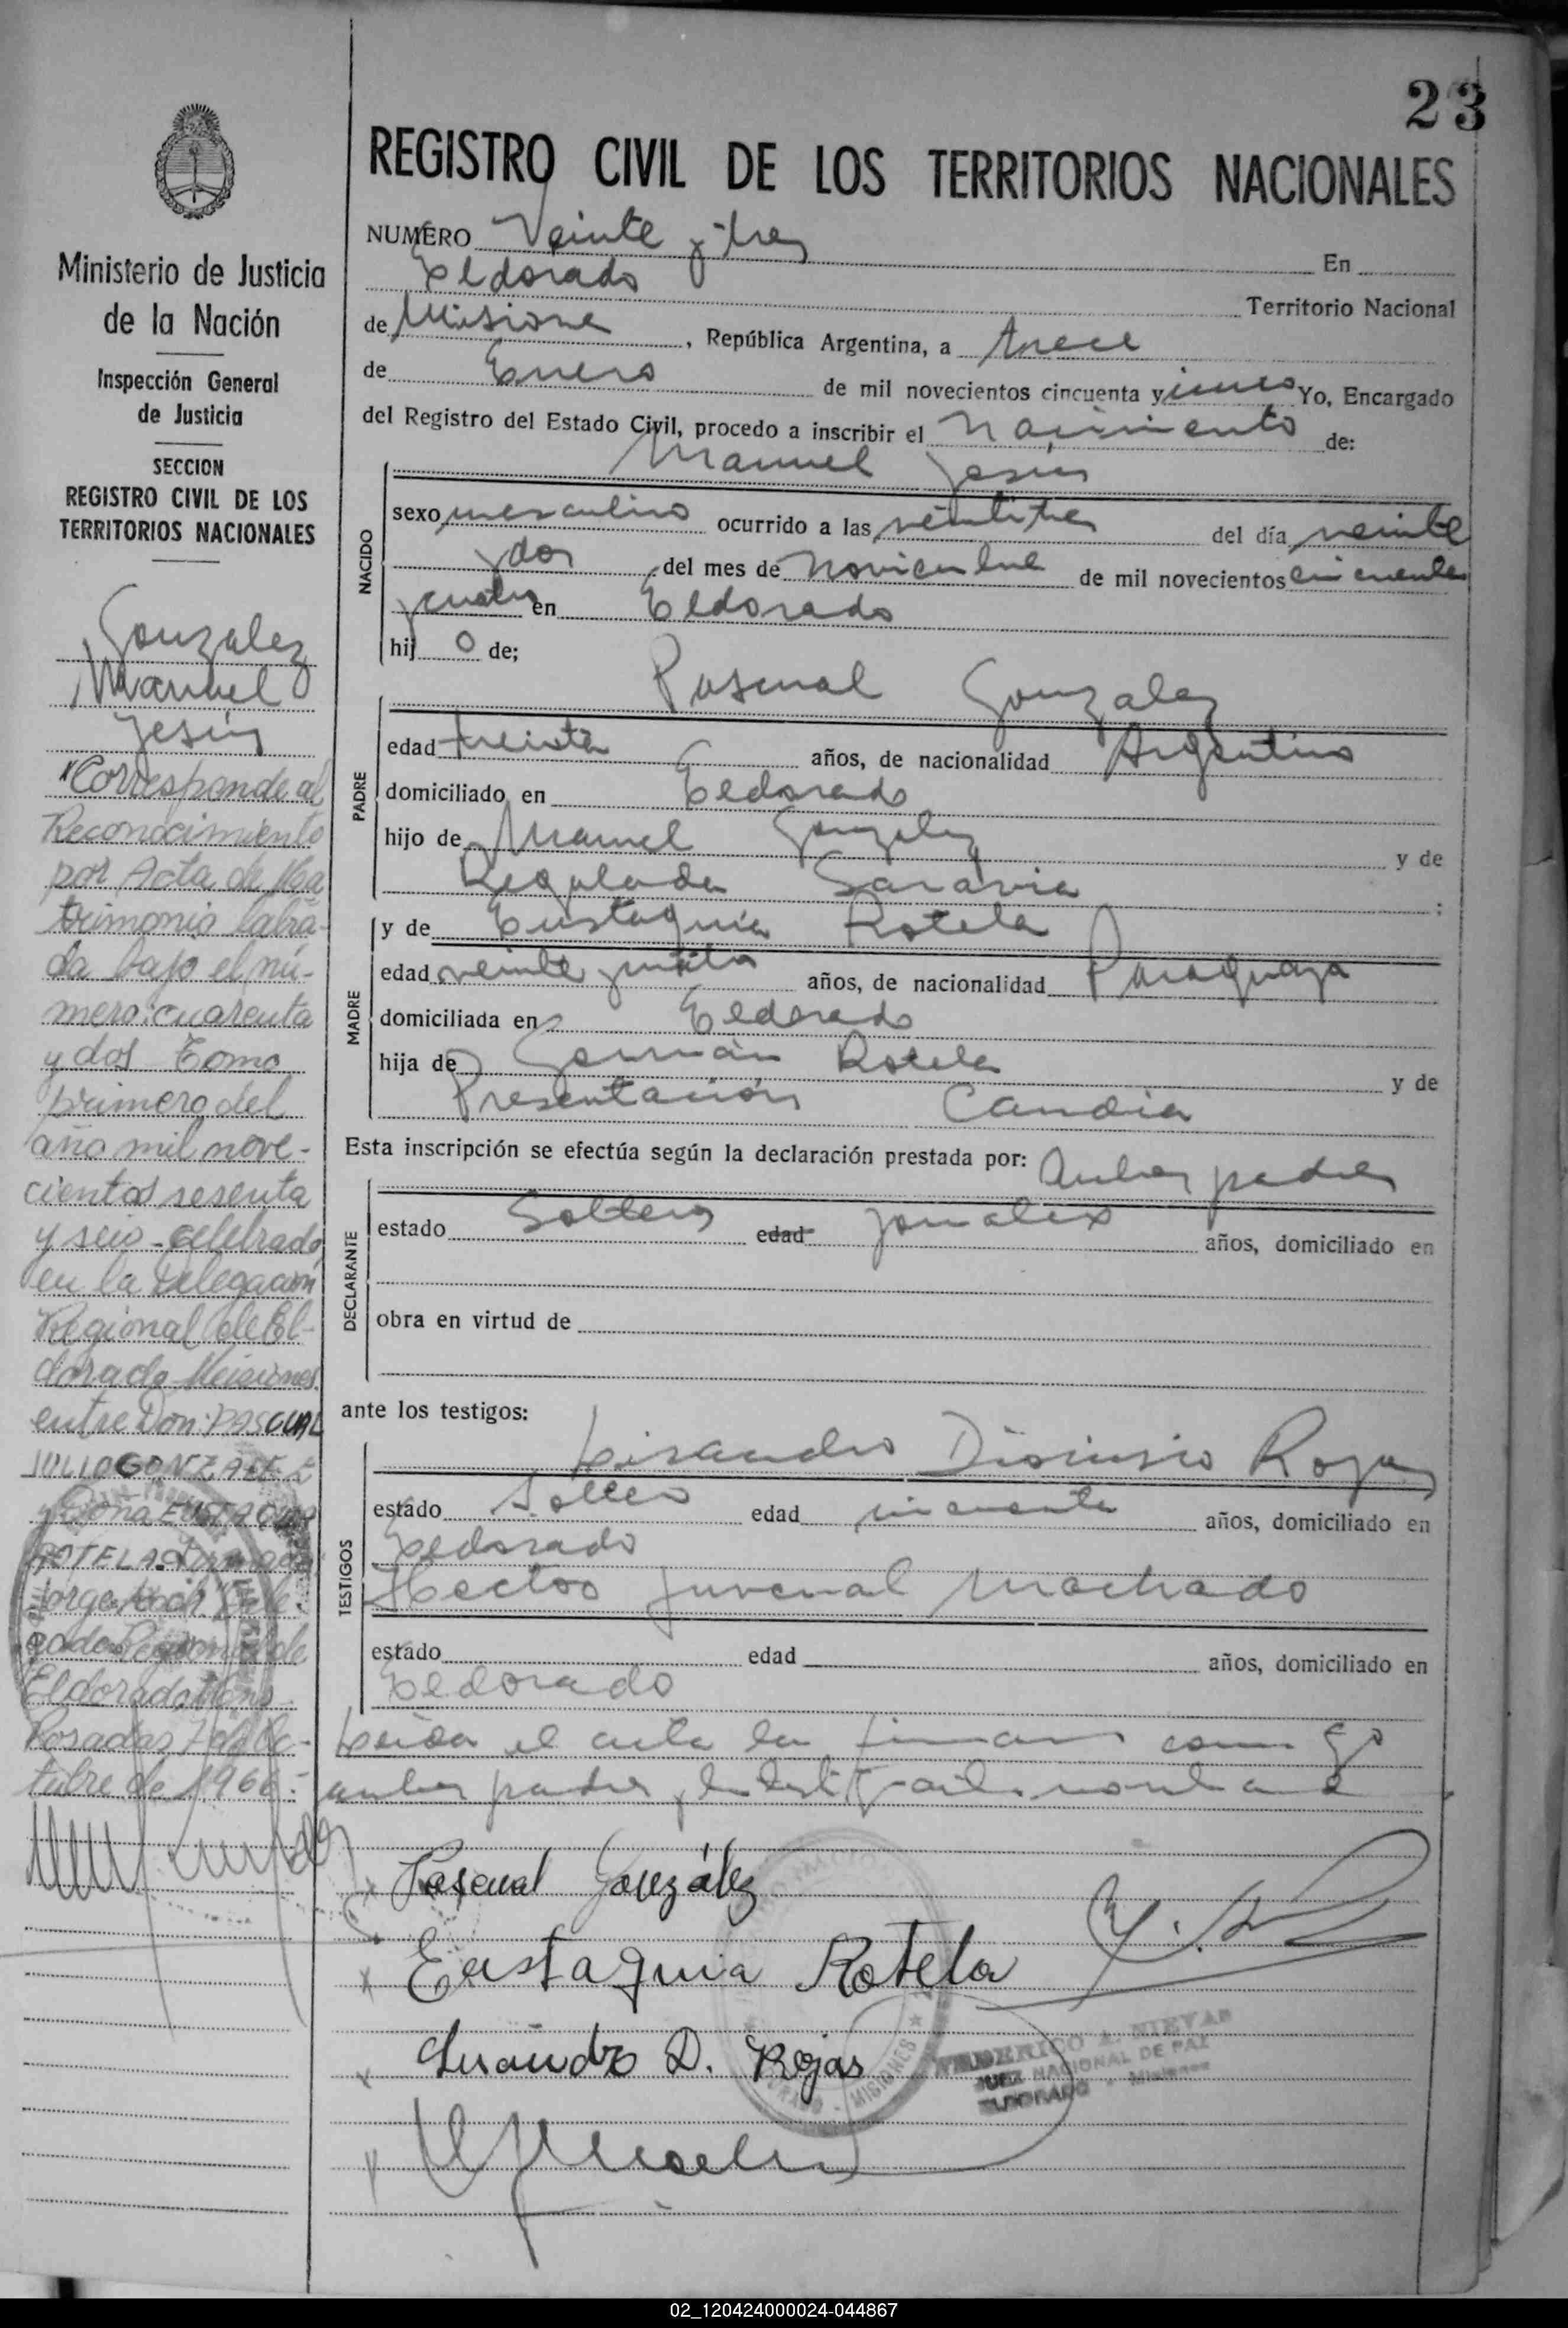 23
REGISTRO CIVIL DE LOS TERRITORIOS NACIONALES
NUMERO Veinte y tres En
Eldorado Territorio Nacional
de Misiones, República Argentina, a trece
de Enero de mil novecientos cincuenta y cinco Yo, Encargado
del Registro del Estado Civil, procedo a inscribir el nacimiento de:
NACIDO
Manuel Jesús
sexo masculino ocurrido a las veintitres del día veinte
y dos del mes de Noviembre de mil novecientos cincuenta
y cuatro en Eldorado
hij o de;
Pascual Gonzalez
PADRE
edad treinta años, de nacionalidad Argentino
domiciliado en Eldorado
hijo de Manuel Gonzalez y de
Regalada Saravia ;
y de Eustaquia Rotela
MADRE
edad veinte y cuatro años, de nacionalidad Paraguaya
domiciliada en Eldorado
hija de Germán Rotela y de
Presentación Candia
Esta inscripción se efectúa según la declaración prestada por: Ambos padres
DECLARANTE
estado Solteros edad jornalero años, domiciliado en
obra en virtud de
ante los testigos:
TESTIGOS
Lisandro Dionisio Rojas
estado Soltero edad cincuenta años, domiciliado en
Eldorado
Hector Juvenal Machado
estado edad años, domiciliado en
Eldorado
Leida el acta la firman con go
ambos padres
Pascual González
Eustaquia Rotela
Lisandro D. Rojas
FEDERICO A. NIEVAS
JUEZ NACIONAL DE PAZ
ELDORADO - Misiones
MISIONES
Ministerio de Justicia
de la Nación
Inspección General
de Justicia
SECCION
REGISTRO CIVIL DE LOS
TERRITORIOS NACIONALES
Gonzalez
Manuel
Jesús
"Corresponde al
Reconocimiento
por Acta de Ma
trimonio labra-
da bajo el nú-
mero: cuarenta
y dos Tomo
primero del
año mil nove-
cientos sesenta
y seis - celebrado
en la Delegación
Regional de El-
dorado Misiones.
entre Don: PASCUAL
JULIO GONZALEZ
y Doña EUSTAQUIA
ROTELA. Firmado:
Jorge Koch Dele-
gado Regional de
Eldorado Mnes
Posadas 7 de Oc-
tubre de 1966.-
02_120424000024-044867